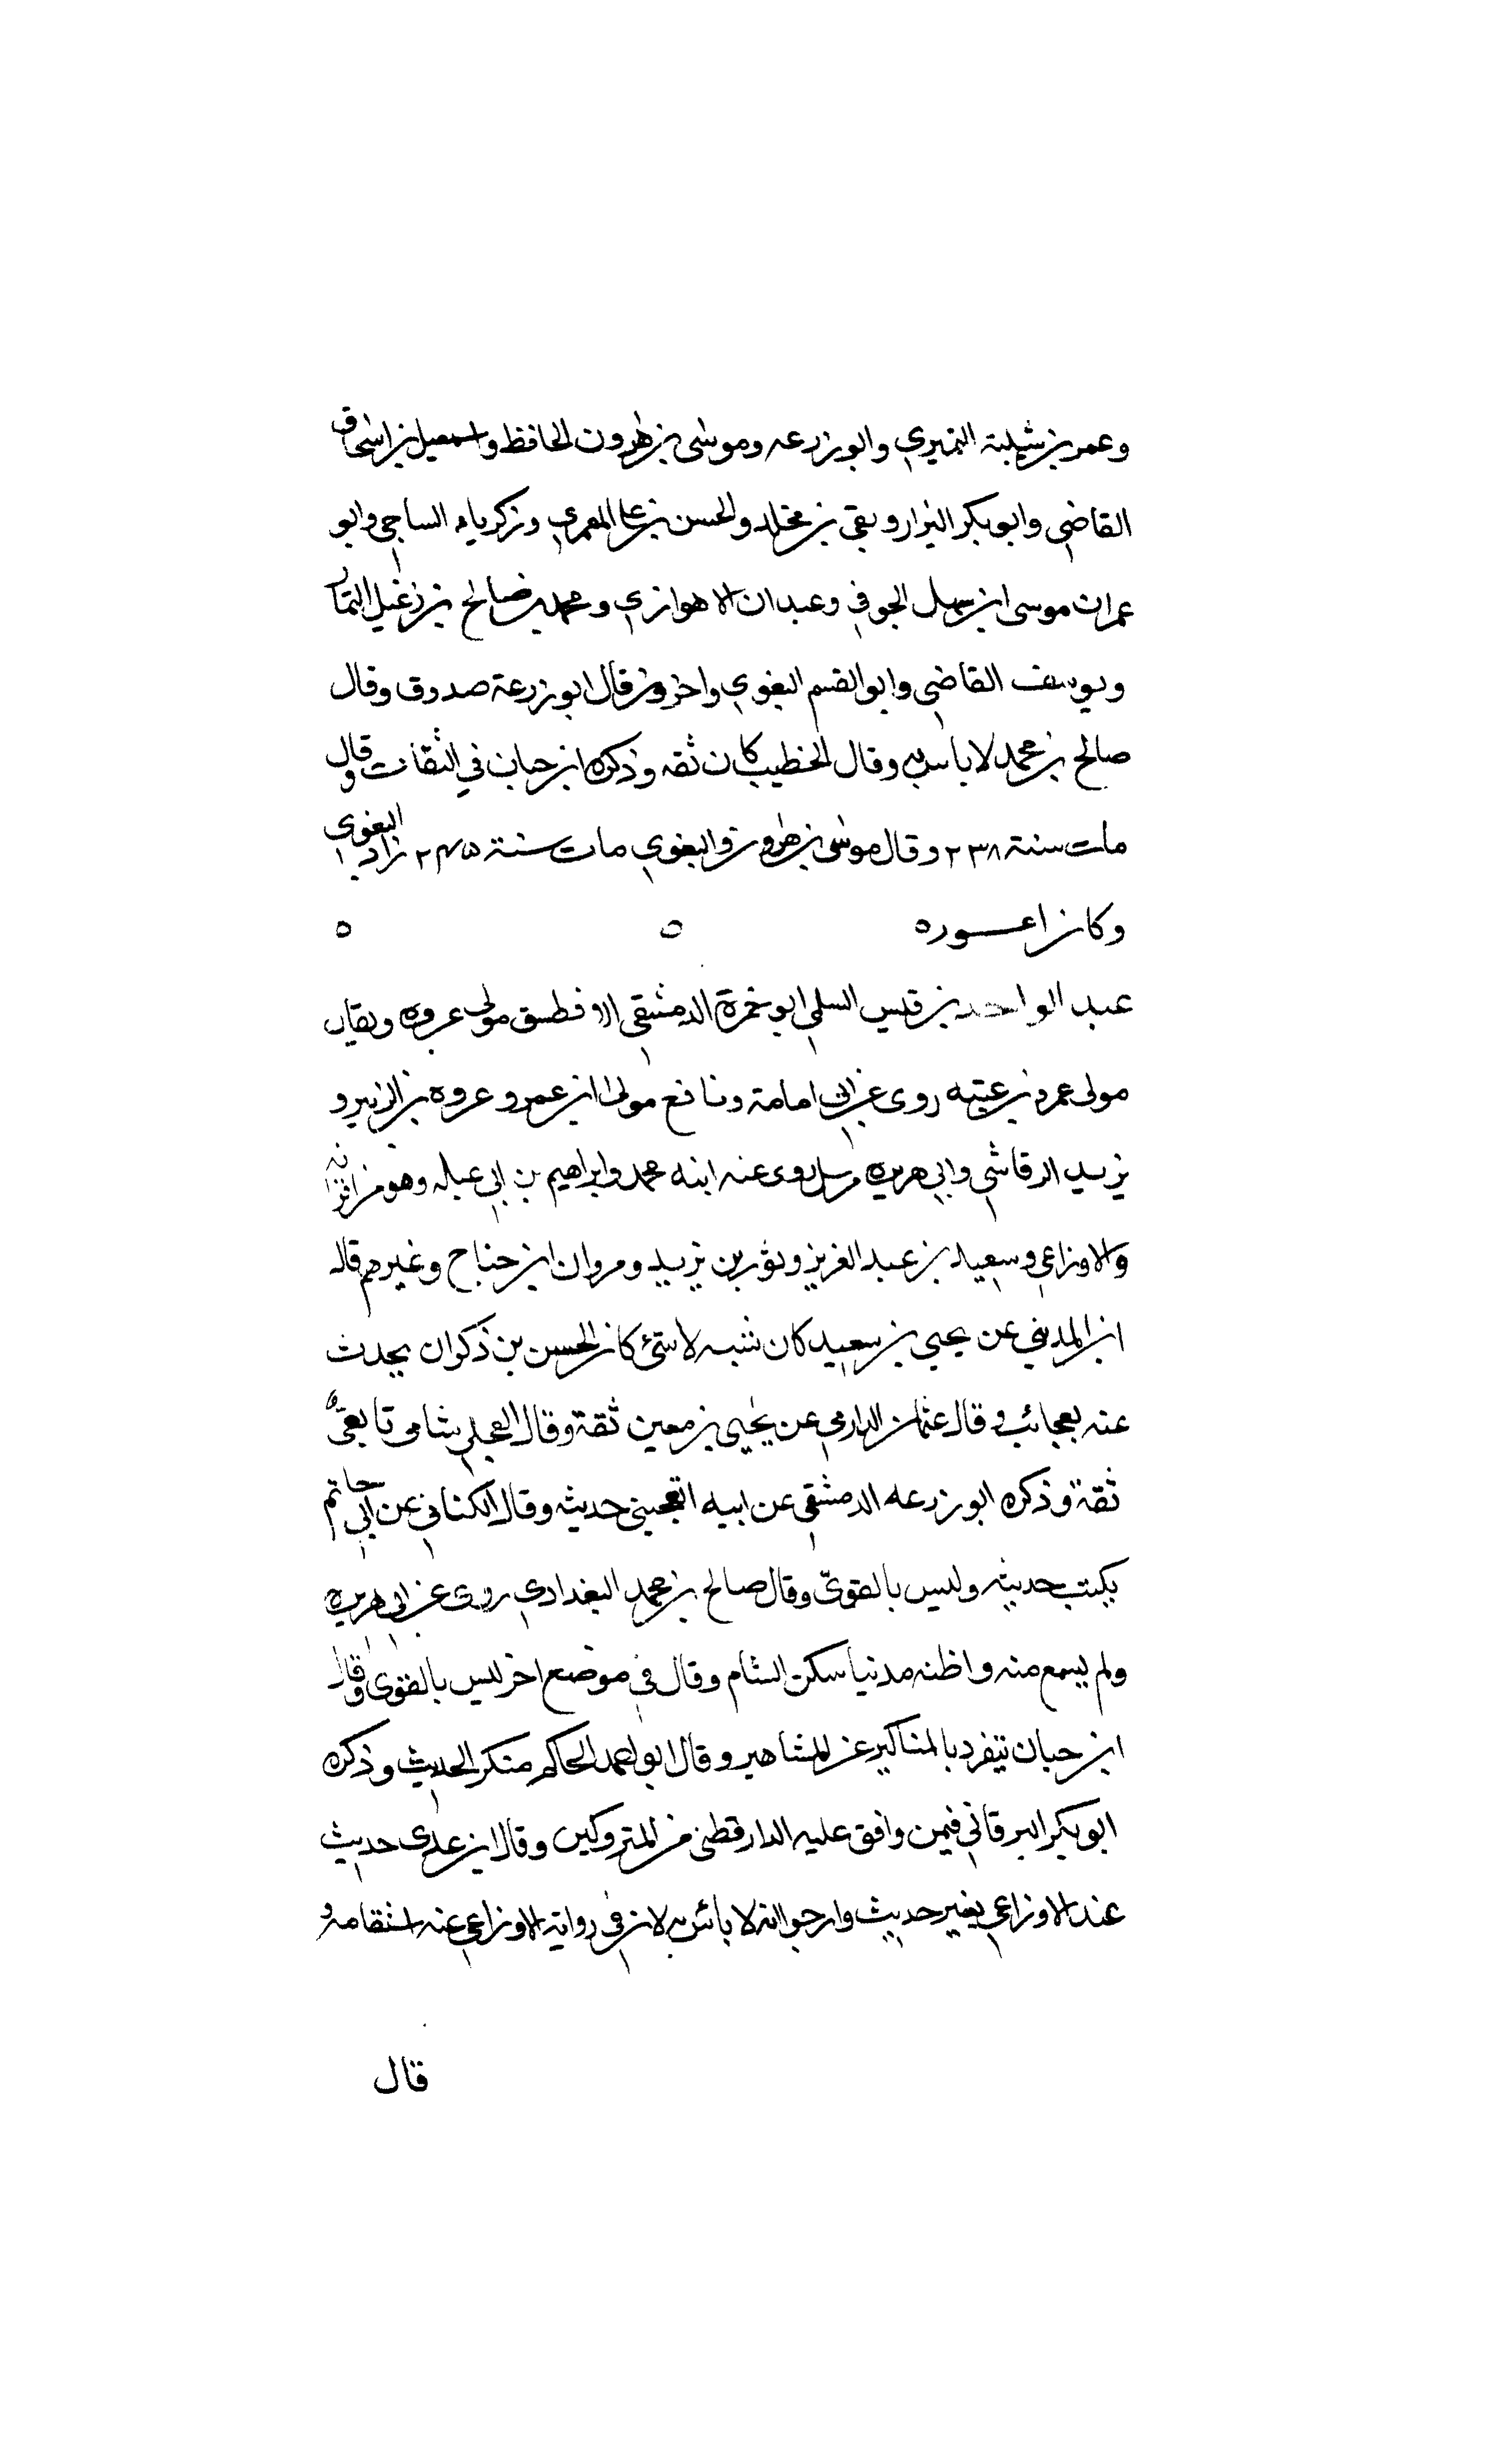 وعمر بن شبة النميري وابو زرعه وموسى بن هرون الحافظ واسمعيل بن اسحاق
القاضي وابو بكر البزار وبقي بن مخلد والحسن بن علي المعمري وزكريا الساجي وابو
عمران موسى ابن سهل الجوني وعبدان الاهوازي ومحمد بن صالح بن ذغيل التمار
ويوسف القاضي وابو القسم البغوي واخرون قال ابو زرعة صدوق وقال
صالح بن محمد لا باس به وقال الخطيب كان ثقه وذكره ابن حبان في الثقات وقال
مات سنة ٢٣٨ وقال موسى بن هرون والبغوي مات سنة ٢٤٥ زاد البغوي
وكان اعور ه ه ه
عبد الواحد بن قيس السلمي ابو حمزة الدمشقي الافطس مولى عروه ويقال
مولى عمرو بن عتبه روى عن ابي امامة ونافع مولى ابن عمر وعروه بن الزبير و
يزيد الرقاشي وابي هريره مرسل روى عنه ابنه محمد وابراهيم بن ابي عبله وهو من اقرانه
والاوزاعي وسعيد بن عبد العزيز وثور بن يزيد ومروان ابن جناح وغيرهم قال
ابن المديني عن يحيى بن سعيد كان شبه لا شئ كان الحسن بن ذكوان يحدث
عنه بعجائب وقال عثمان الدارمي عن يحيى بن معين ثقة وقال العجلي شامي تابعي
ثقة وذكره ابو زرعه الدمشقي عن ابيه اتعجبني حديثه وقال الكناني عن ابي حاتم
يكتب حديثه وليس بالقوي وقال صالح بن محمد البغدادي روى عن ابي هريره
ولم يسمع منه واظنه مدنيا سكن الشام وقال في موضع اخر ليس بالقوى وقال
ابن حبان يتفرد بالمناكير عن المشاهير وقال ابو احمد الحاكم منكر الحديث وذكره
ابو بكر البرقاني فيمن وافق عليه الدارقطني من المتروكين وقال ابن عدى حديث
عند الاوزاعي بغير حديث وارجو انه لا باس به لان في رواية الاوزاعي عنه استقامه و
قال